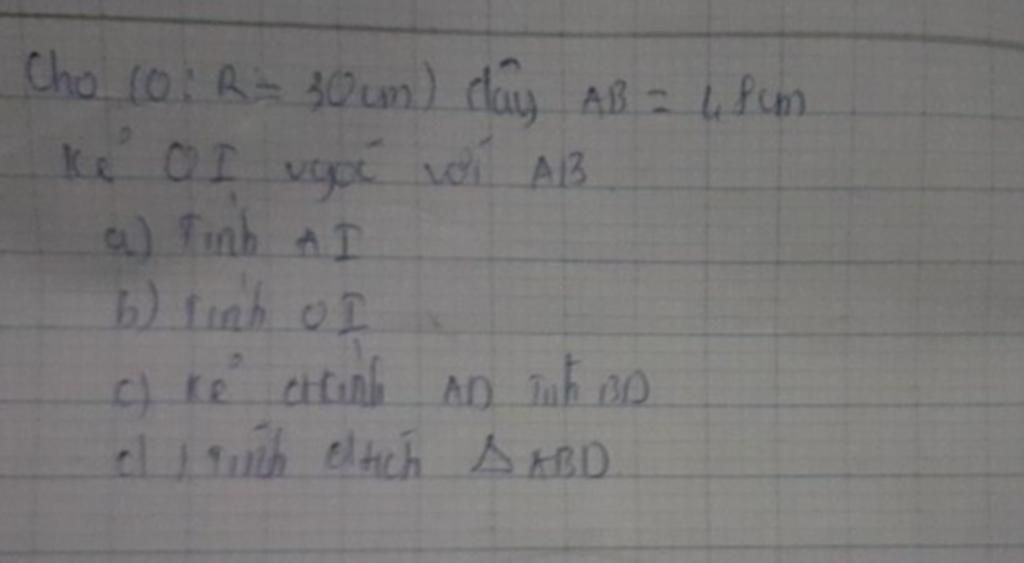 Cho (O; R = 30cm) dây AB = 48cm
Kẻ OI vgoc với AB
a) Tính AI
b) tính OI
c) Kẻ đkính AD tính BD
d) tính dtích Δ ABD